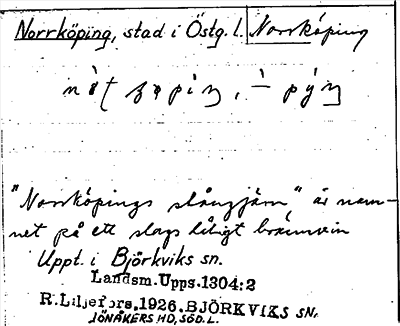 Norrköping, stad i Östg. l. Norrköping
"Norrköpings slångjärn" är nam-
net på ett slags dåligt brännvin
Uppt. i Björkviks sn.
Landsm. Upps. 1304:2
R. Liljefors. 1926. BJÖRKVIKS SN.
JÖNÅKERS HD, SÖD. L.